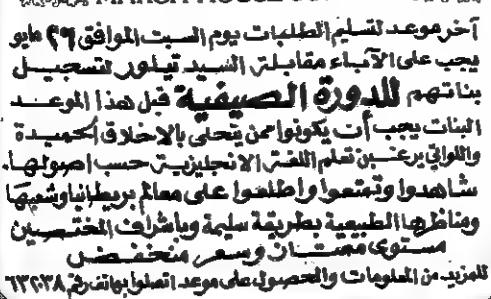 آخر موعد لتسليم الطلبات يوم السبت الموافق ٢٩ مايو
يجب على الآباء مقابلة السيد تيلور لتسجيل
بناتهم للدورة الصيفية قبل هذا الموعد
البنات يجب أن يكونوا ممن يتحلى بالاخلاق الحميدة
واللواتي يرغبن تعلم اللغة الانجليزية حسب اصولها.
شاهدوا وتمتعوا واطلعوا على معالم بريطانيا وشعبها
ومناظرها الطبيعية بطريقة سليمة وباشراف المختصين
مستوى ممتاز وسعر منخفض
للمزيد من المعلومات والحصول على موعد اتصلوا بهاتف رقم ٦٦٣٢٠٣٨